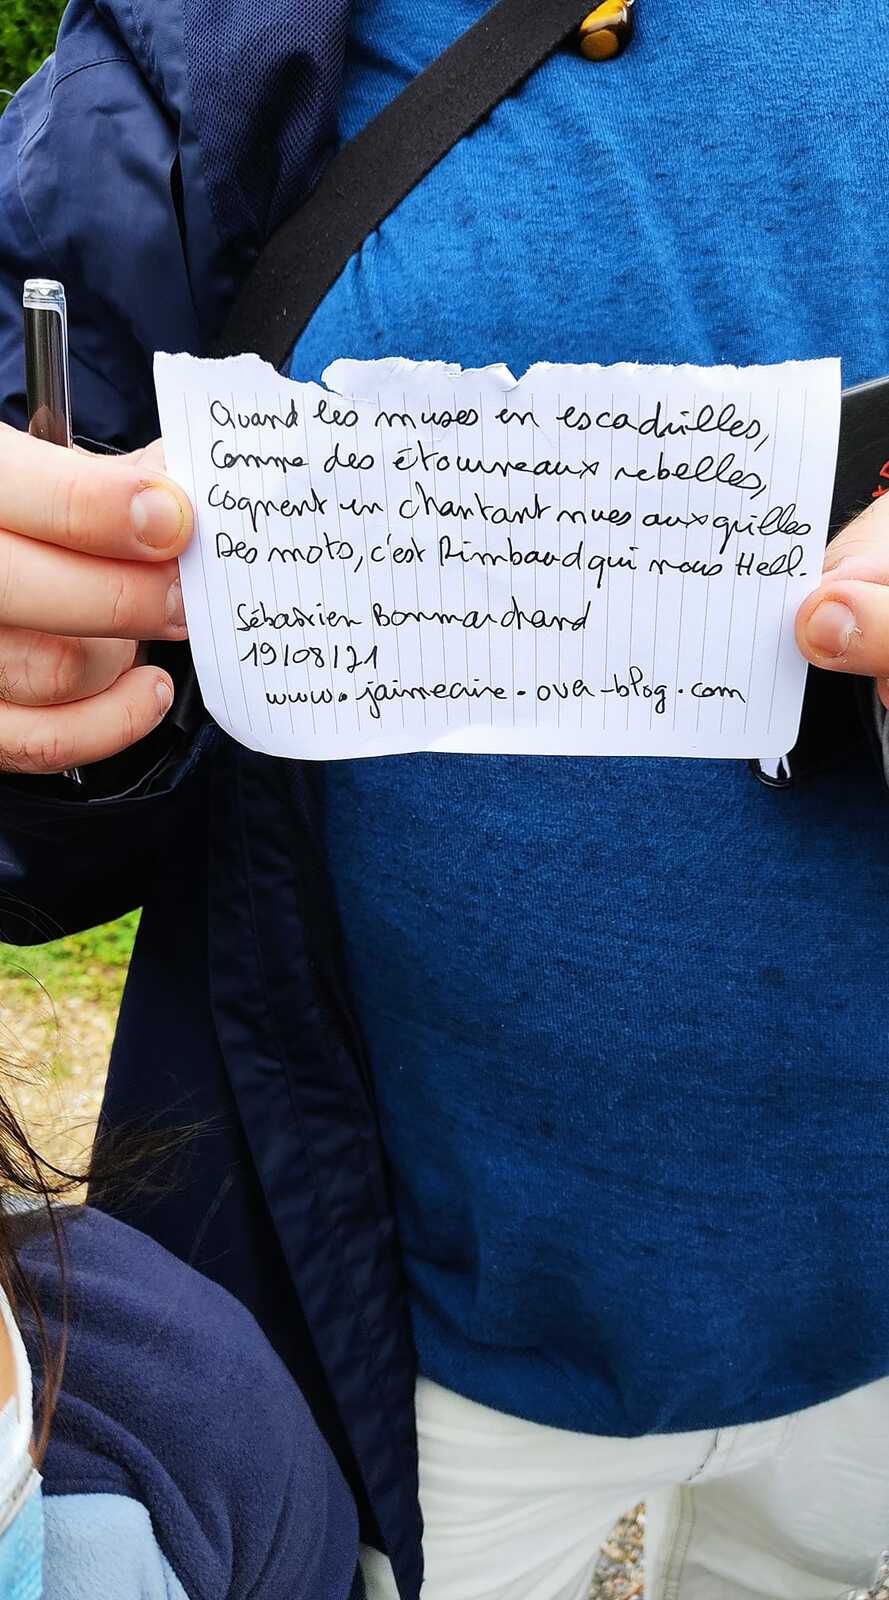 Quand les muses en escadrilles,
Comme des étourneaux rebelles,
Cognent en chantant nues aux quilles
Des mots, c'est Rimbaud qui nous Hell.
Sébastien Bonmarchand
19/08/21
www.jaimecrire.over-blog.com